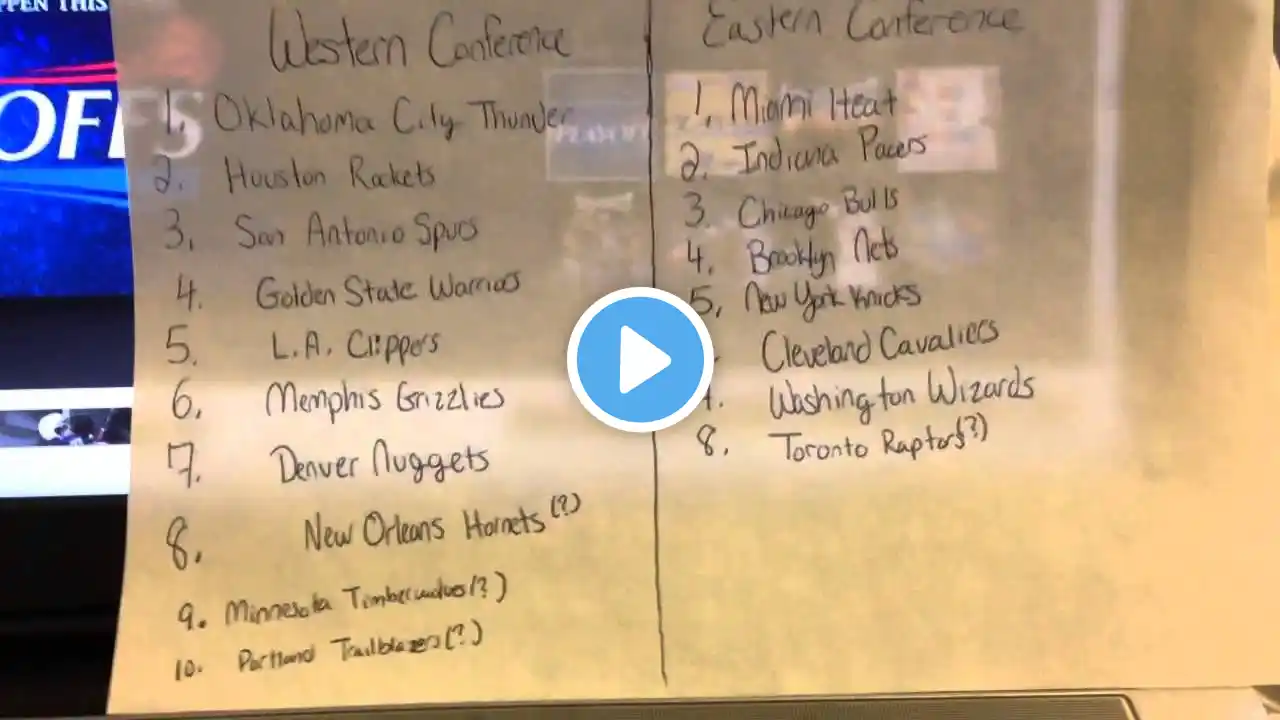 PPEN THIS
OFFS
Western Conference
1. Oklahoma City Thunder
2. Houston Rockets
3. San Antonio Spurs
4. Golden State Warriors
5. L.A. Clippers
6. Memphis Grizzlies
7. Denver Nuggets
8. New Orleans Hornets (?)
9. Minnesota Timberwolves (?)
10. Portland Trailblazers (?)
Eastern Conference
1. Miami Heat
2. Indiana Pacers
3. Chicago Bulls
4. Brooklyn Nets
5. New York Knicks
Cleveland Cavaliers
7. Washington Wizards
8. Toronto Raptors (?)